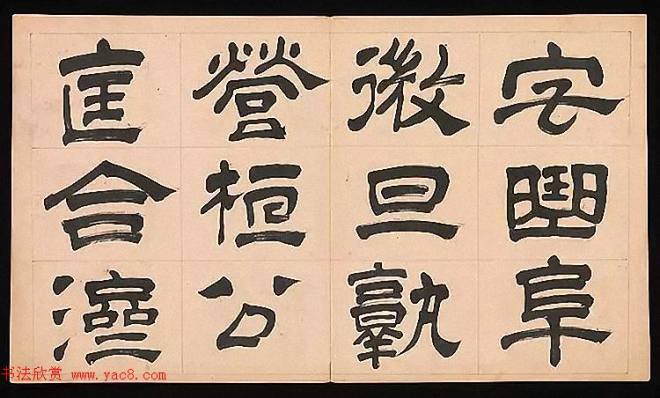 宅曲阜
微旦孰
營桓公
匡合濟
书法欣赏 www.yac8.com